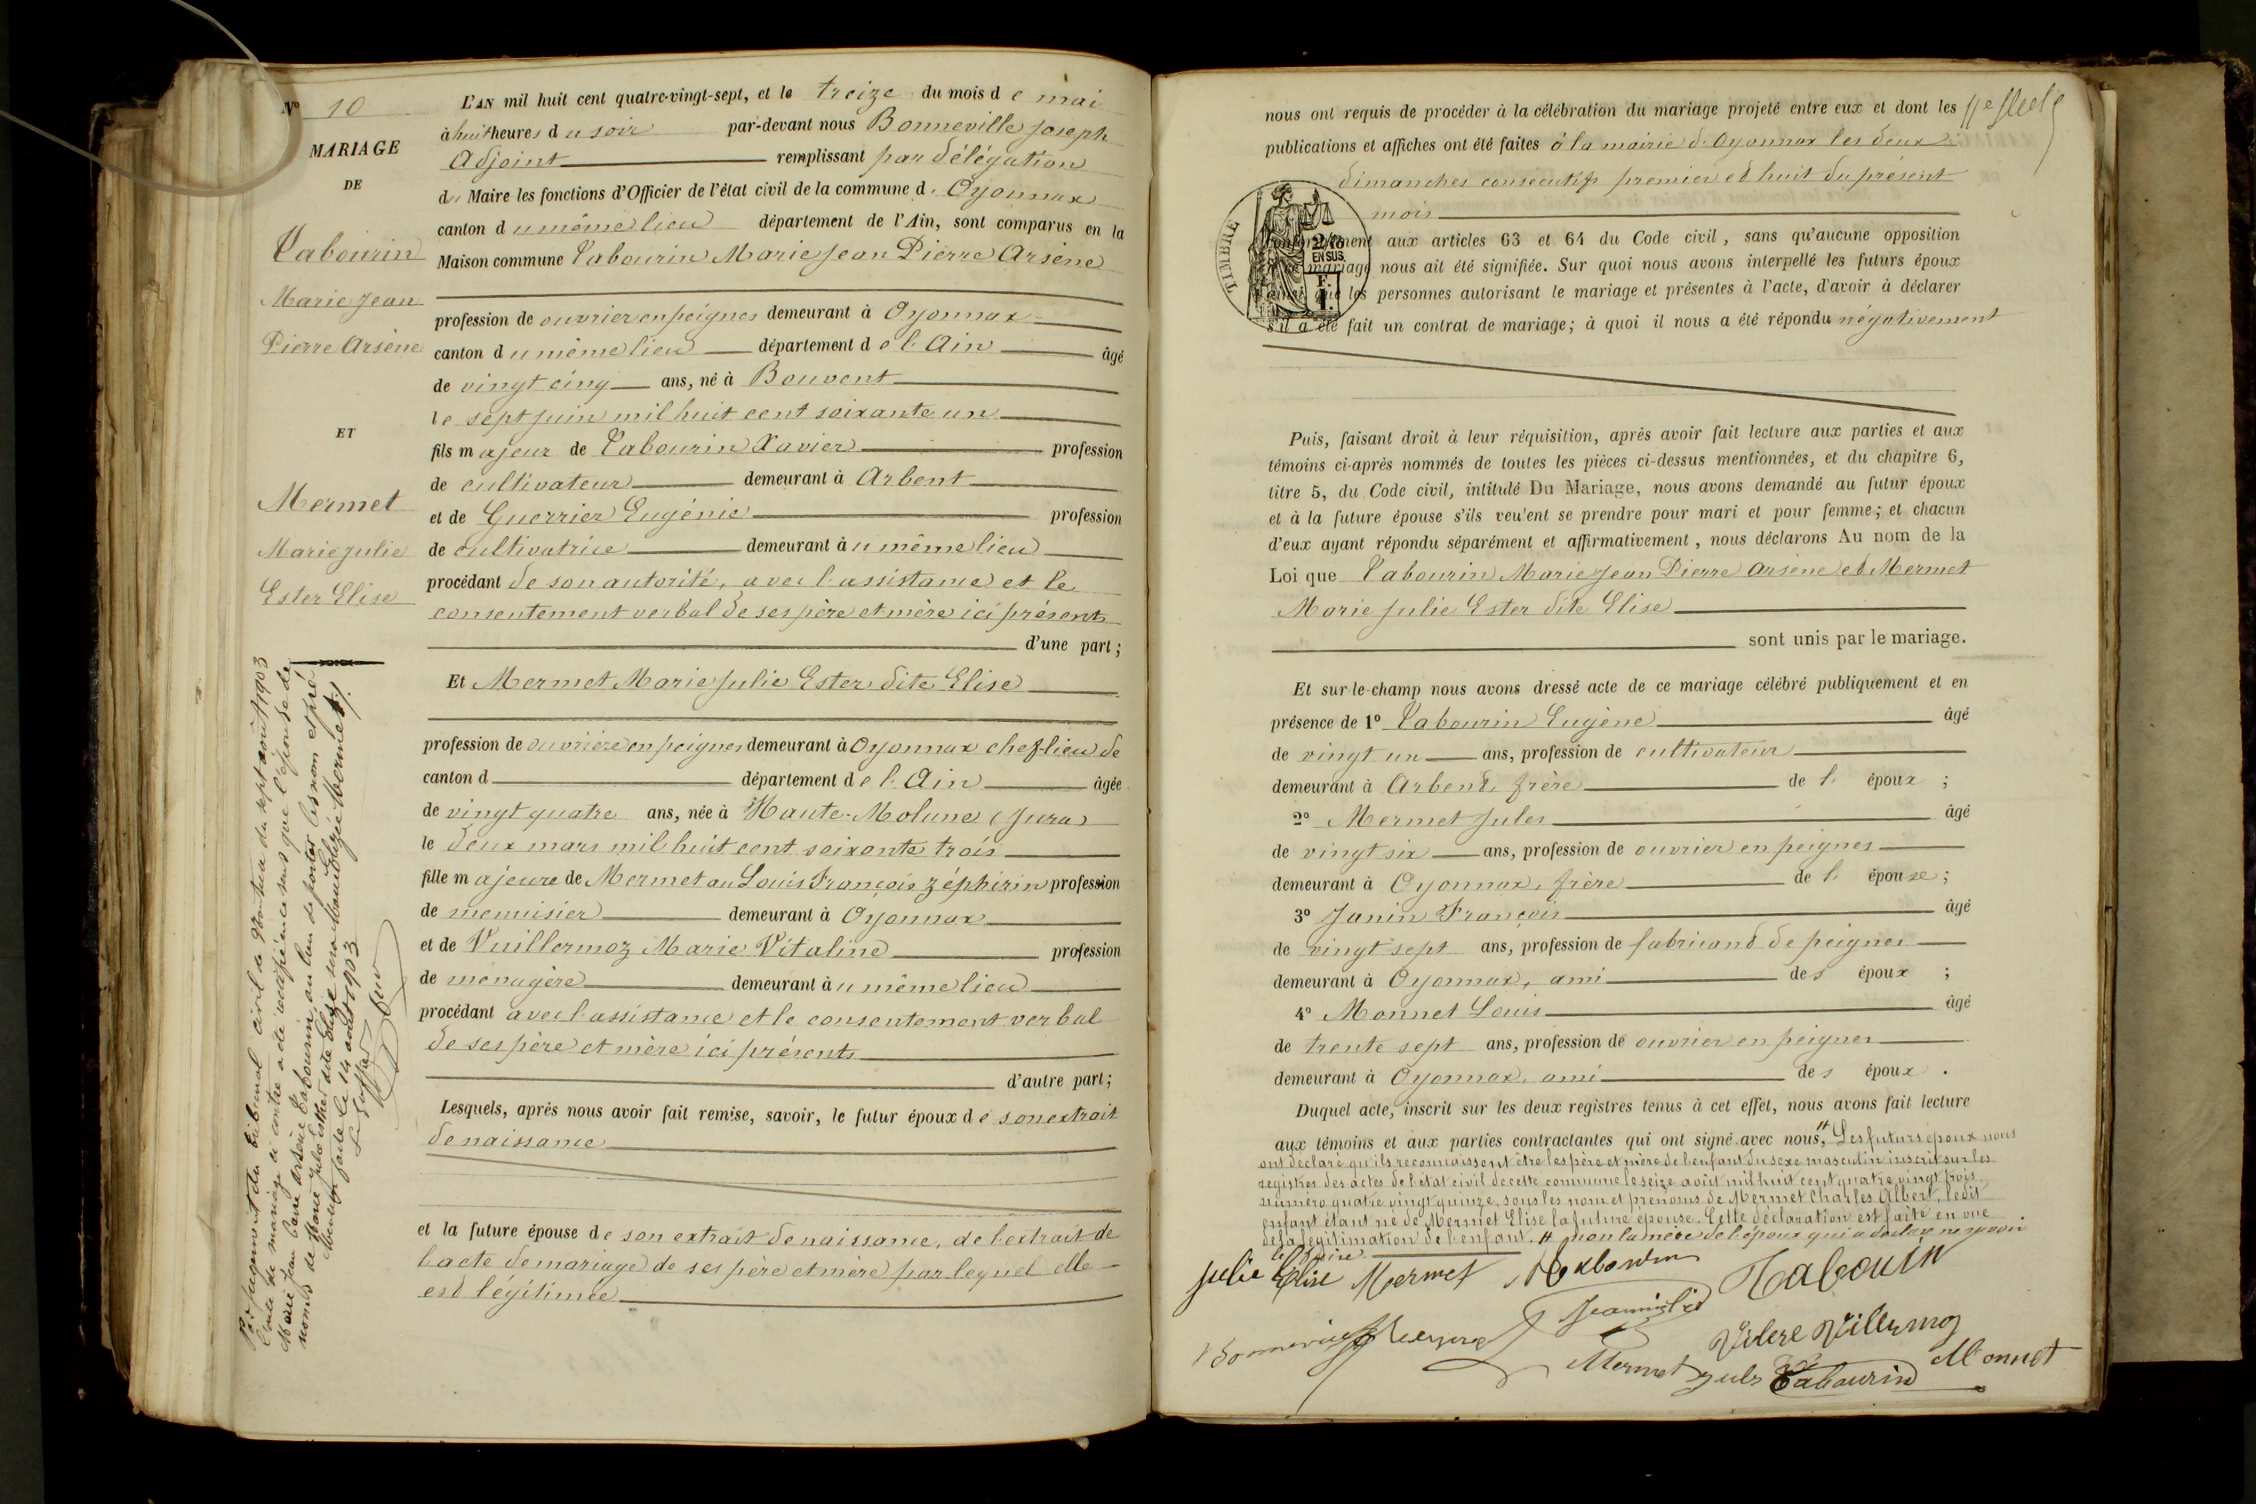 N° 10
MARIAGE
DE
Tabourin
Marie Jean
Pierre Arsène
ET
Mermet
Marie Julie
Ester Elise
Par jugement du tribunal civil de Nantua du sept août 1903
l'acte de mariage ci contre a été rectifié en ce sens que l'épouse de
Marie Jean Pierre Arsène Tabourin, au lieu de porter les nom et pré
noms de Marie Julie Esther dite Elise sera Marie Elizée Mermet
Mention faite le 14 août 1903
Le Greffier
L'AN mil huit cent quatre-vingt-sept, et le treize du mois de mai
à huit heures du soir par-devant nous Bonneville Joseph
Adjoint remplissant par délégation
du Maire les fonctions d'Officier de l'état civil de la commune d'Oyonnax
canton du même lieu département de l'Ain, sont comparus en la
Maison commune Tabourin Marie Jean Pierre Arsène
profession de ouvrier en peignes demeurant à Oyonnax
canton du même lieu département de l'Ain âgé
de vingt cinq ans, né à Bouvent
le sept juin mil huit cent soixante un
fils majeur de Tabourin Xavier profession
de cultivateur demeurant à Arbent
et de Guerrier Eugénie profession
de cultivatrice demeurant au même lieu
procédant de son autorité, avec l'assistance et le
consentement verbal de ses père et mère ici présents
d'une part;
Et Mermet Marie Julie Ester dite Elise
profession de ouvrière en peignes demeurant à Oyonnax chef lieu de
canton d département de l'Ain âgée
de vingt quatre ans, née à Haute-Molune (Jura)
le deux mars mil huit cent soixante trois
fille majeure de Mermet au Louis François Zéphirin profession
de menuisier demeurant à Oyonnax
et de Vuillermoz Marie Vitaline profession
de ménagère demeurant au même lieu
procédant avec l'assistance et le consentement verbal
de ses père et mère ici présents
d'autre part;
Lesquels, après nous avoir fait remise, savoir, le futur époux de son extrait
de naissance
et la future épouse de son extrait de naissance, de l'extrait de
l'acte de mariage de ses père et mère par lequel elle
est légitimée
nous ont requis de procéder à la célébration du mariage projeté entre eux et dont les
publications et affiches ont été faites à la mairie d'Oyonnax les deux
dimanches consécutifs premier et huit du présent
mois
TIMBRE
2/10
EN SUS.
conformément aux articles 63 et 64 du Code civil, sans qu'aucune opposition
mariage nous ait été signifiée. Sur quoi nous avons interpellé les futurs époux
que les personnes autorisant le mariage et présentes à l'acte, d'avoir à déclarer
s'il a été fait un contrat de mariage; à quoi il nous a été répondu négativement
Puis, faisant droit à leur réquisition, après avoir fait lecture aux parties et aux
témoins ci-après nommés de toutes les pièces ci-dessus mentionnées, et du chapitre 6,
titre 5, du Code civil, intitulé Du Mariage, nous avons demandé au futur époux
et à la future épouse s'ils veu'ent se prendre pour mari et pour femme; et chacun
d'eux ayant répondu séparément et affirmativement, nous déclarons Au nom de la
Loi que Tabourin Marie Jean Pierre Arsène et Mermet
Marie Julie Ester dite Elise
sont unis par le mariage.
Et sur-le-champ nous avons dressé acte de ce mariage célébré publiquement et en
présence de 1° Tabourin Eugène âgé
de vingt un ans, profession de cultivateur
demeurant à Arbent, frère de l'époux ;
2° Mermet Jules âgé
de vingt six ans, profession de ouvrier en peignes
demeurant à Oyonnax, frère de l'épouse ;
3° Janin François âgé
de vingt sept ans, profession de fabricant de peignes
demeurant à Oyonnax, ami des époux ;
4° Monnet Louis âgé
de trente sept ans, profession de ouvrier en peignes
demeurant à Oyonnax, ami des époux .
Duquel acte, inscrit sur les deux registres tenus à cet effet, nous avons fait lecture
aux témoins et aux parties contractantes qui ont signé avec nous, # Les futurs époux nous
ont déclaré qu'ils reconnaissent être les père et mère de l'enfant du sexe masculin inscrit sur les
registres des actes de l'état civil de cette commune le seize août mil huit cent quatre vingt trois,
numéro quatre vingt quinze, sous les nom et prénoms de Mermet Charles Albert, ledit
enfant étant né de Mermet Elise la future épouse. Cette déclaration est faite en vue
de la légitimation de l'enfant. # non la mère de l'époux qui a déclaré ne savoir
le faire.
Julie Elise Mermet
Tabourin
Mermet Jules
Tabourin
Monnet